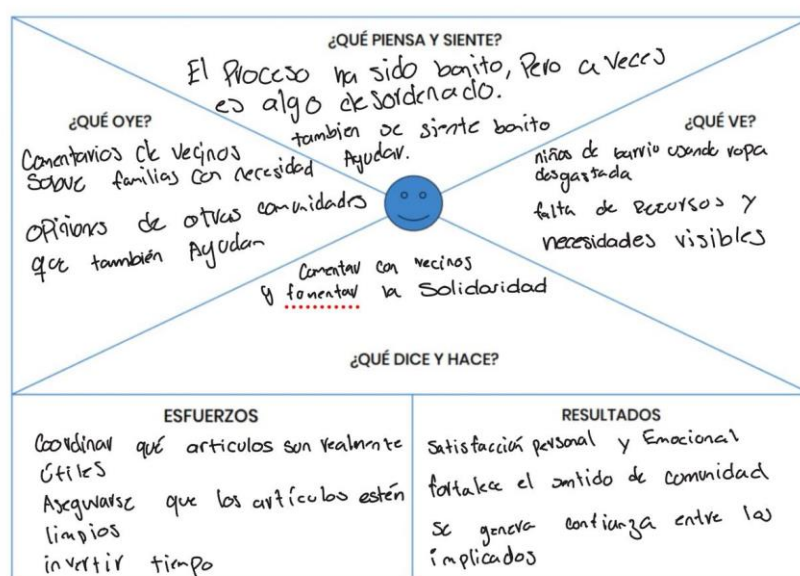 ¿QUÉ PIENSA Y SIENTE?
El Proceso ha sido bonito, Pero a veces
es algo desordenado.
tambien se siente bonito
Ayudar.
¿QUÉ OYE?
Comentarios de vecinos
Sobre familias con necesidad
opiniones de otras comunidades
que también Ayudan
¿QUÉ VE?
niños de barrio usando ropa
desgastada
falta de Recursos y
necesidades visibles
Comentar con vecinos
y fomentar la Solidaridad
¿QUÉ DICE Y HACE?
ESFUERZOS
Coordinar qué articulos son realmente
útiles
Asegurarse que los artículos estén
limpios
invertir tiempo
RESULTADOS
Satisfacción personal y Emocional
fortalece el sentido de comunidad
se genera confianza entre los
implicados